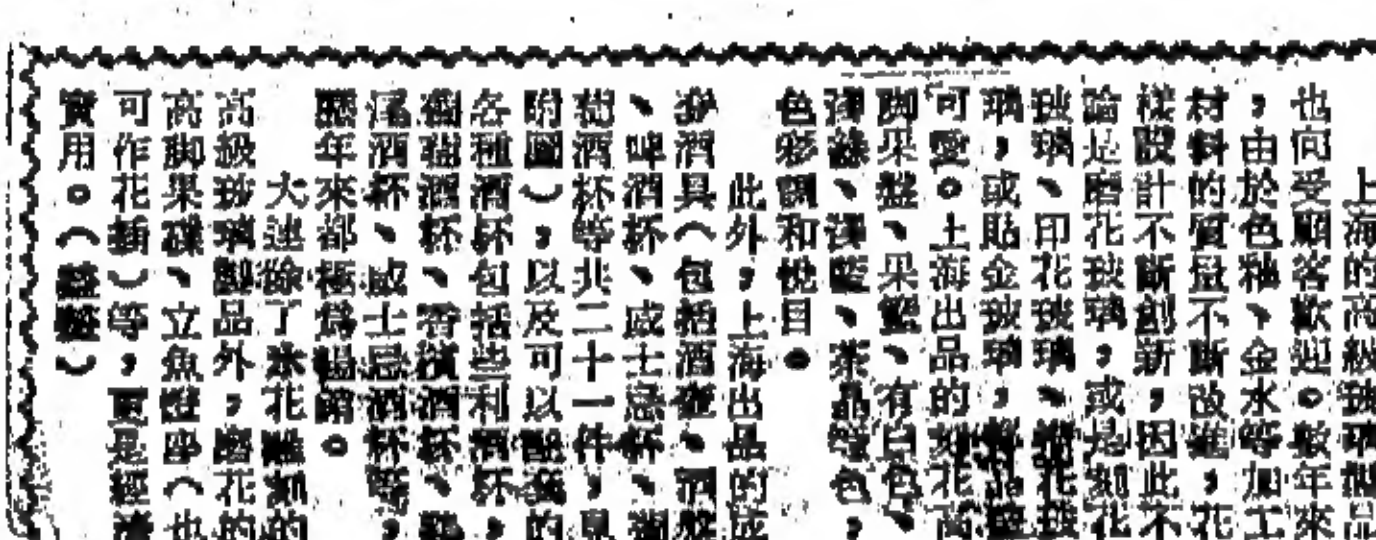 上海的高級玻璃製品
也向受顧客歡迎。數年來
，由於色釉、金水等加工
材料的質量不斷改進，花
樣設計不斷創新，因此不
論是磨花玻璃，或是刻花
玻璃、印花玻璃、花玻
璃，或貼金玻璃，
可愛。上海出品的刻花高
脚果盤、果籃、有白色、
深綠、深藍、茶晶色，
色彩調和悅目。
此外，上海出品的成
套酒具（包括酒壺、酒盤
、啤酒杯、威士忌杯、
萄酒杯等共二十一件，見
附圖），以及可以的
各種酒杯包括些利酒杯，
酒杯、香檳酒杯、雞
尾酒杯、威士忌酒杯等，
歷年來都極爲暢銷。
大連除了氷花雕刻的
高級玻璃製品外，磨花的
高脚果碟、立魚燈座（也
可作花插）等，更是經濟
實用。（）